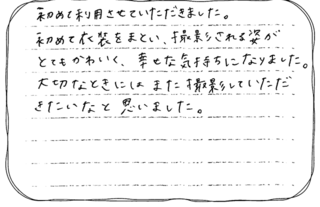 初めて利用させていただきました。
初めて衣装をまとい、撮影される姿が
とてもかわいく、幸せな気持ちになりました。
大切なときにはまた撮影していただ
きたいなと思いました。